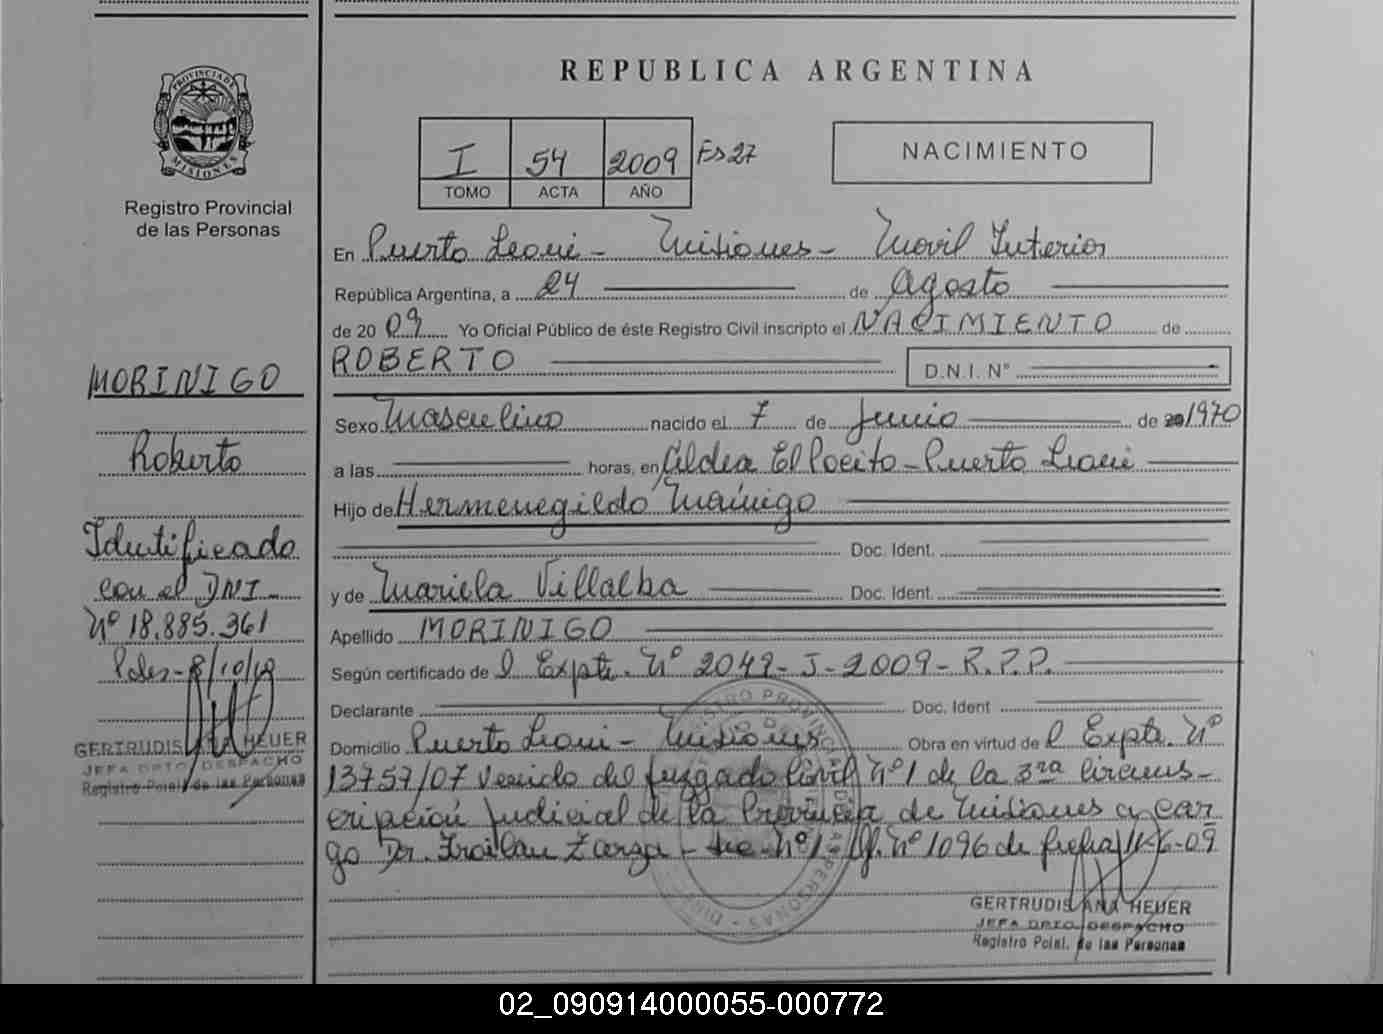 REPUBLICA ARGENTINA
PROVINCIA DE MISIONES
Registro Provincial
de las Personas
I 54 2009 Fs 27
TOMO ACTA AÑO
NACIMIENTO
En Puerto Leoni - Misiones - Movil Interior
República Argentina, a 24 de Agosto
de 20 09 Yo Oficial Público de éste Registro Civil inscripto el NACIMIENTO de
ROBERTO D.N.I. N°
Sexo Masculino nacido el 7 de Junio de 1970
a las horas, en Aldea El Pocito - Puerto Leoni
Hijo de Hermenegildo
Doc. Ident.
y de Mariela Villalba Doc. Ident.
Apellido MORINIGO
Según certificado de l Expte. Nº 2049-J-2009-R.P.P.
Declarante Doc. Ident
Domicilio Puerto Leoni - Misiones Obra en virtud de l Expte. Nº
13757/07 Venido del Juzgado Civil Nº 1 de la 3ra Circuns-
cripción Judicial de la Provincia de Misiones a car
go Dr. Froilan Zarza - Nº 1 Of. Nº 1096 de fecha 11-6-09
GERTRUDIS ANA HEUER
JEFA DPTO. DESPACHO
Registro Pcial. de las Personas
MORINIGO
Roberto
Identificado
con el DNI
Nº 18.885.361
Pdas-8/10/18
GERTRUDIS ANA HEUER
JEFA DPTO DESPACHO
Registro Pcial de las Personas
02_090914000055-000772